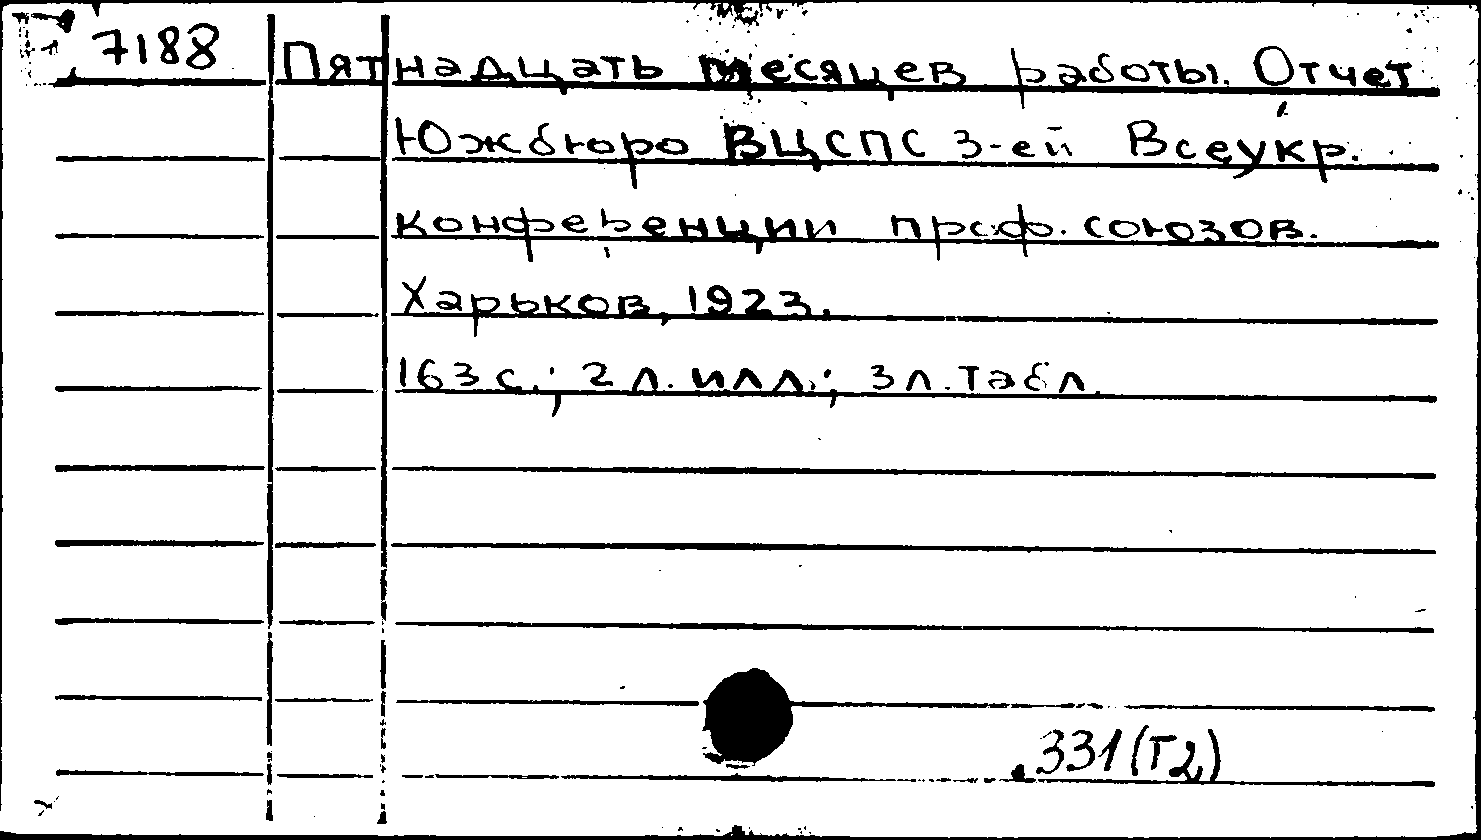 7188 Пятнадцать месяцев работы. Отчет
Южбюро ВЦСПС 3-ей Всеукр.
конференции проф. союзов.
Харьков, 1923.
163 с.; 2 л. илл.; 3 л. табл.
331(Т2)